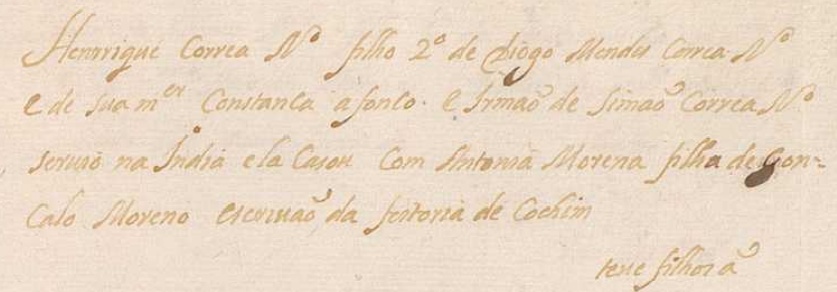 Henrrique Correa Nº filho 2º de Diogo Mendes Correa Nº
e de sua m.er Constanca afonco. e Irmaõ de Simaõ Correa Nº
seruio na India e la Casou Com Antonia Morena filha de Gon-
Calo Moreno escriuaõ da feitoria de Cochim
teue filhos